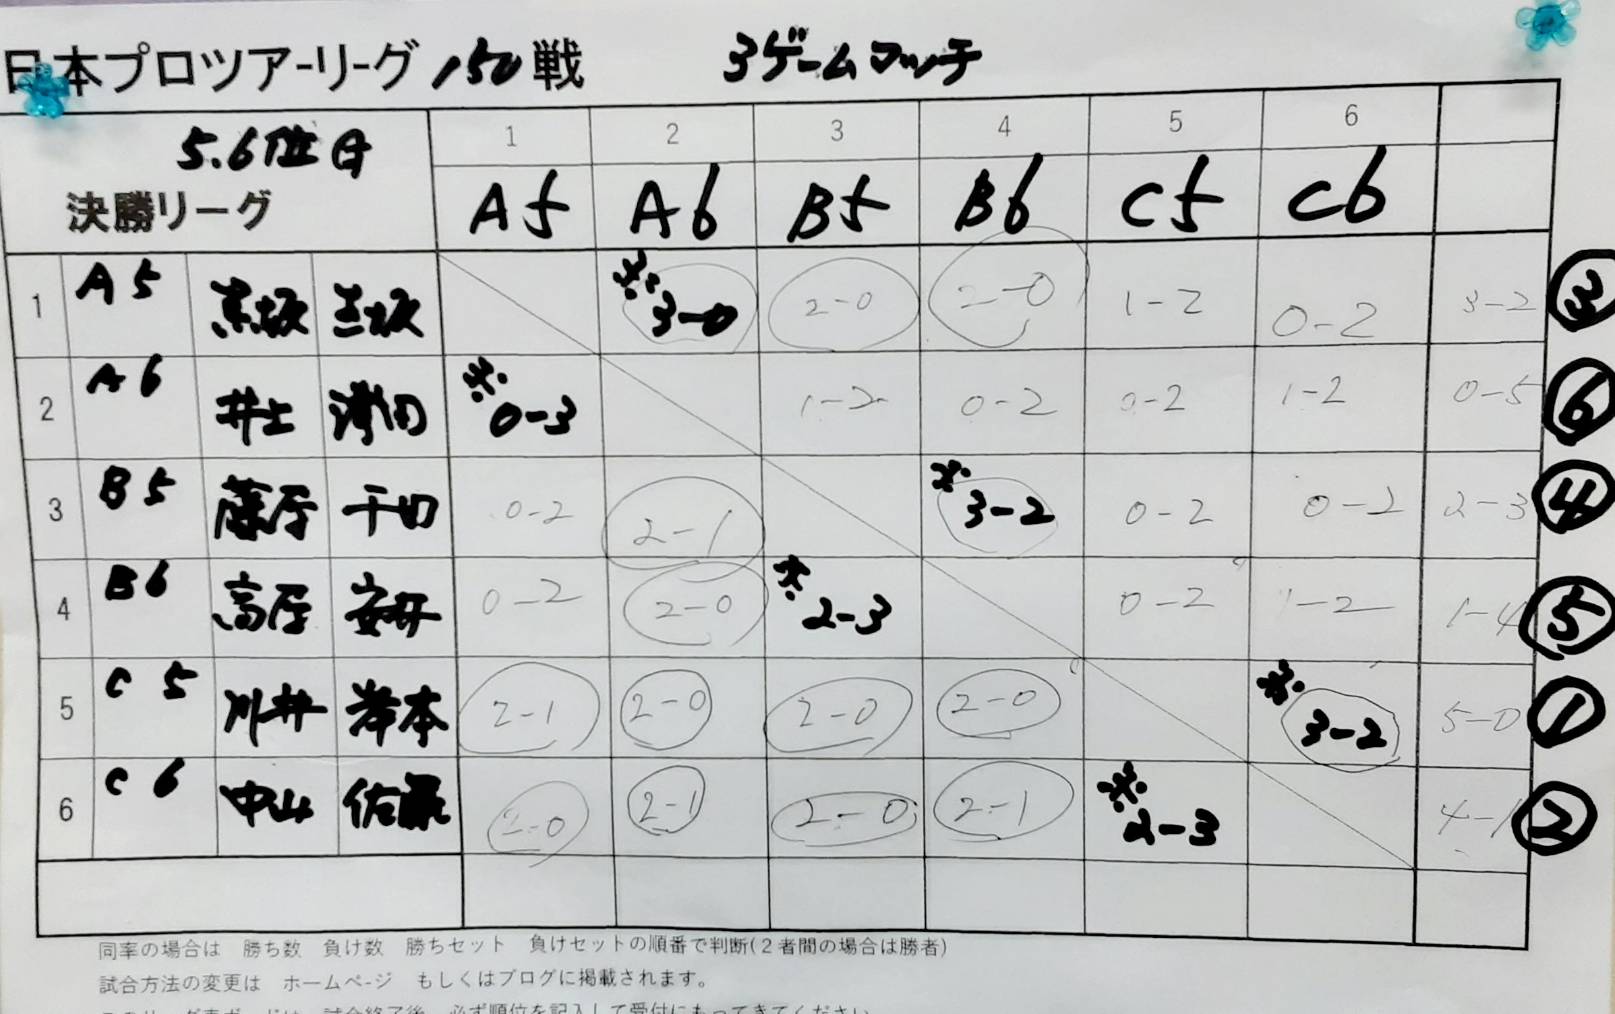 日本プロツアーリーグ 150 戦 3ゲームマッチ
5.6位 決勝リーグ
1 2 3 4 5 6
A5 A6 B5 B6 C5 C6
1 A5 赤坂 三坂 ※ 3-0 2-0 2-0 1-2 0-2 3-2 ③
2 A6 井上 ※ 0-3 1-2 0-2 0-2 1-2 0-5 ⑥
3 B5 藤原 0-2 2-1 ※ 3-2 0-2 0-2 2-3 ④
4 B6 高原 安井 0-2 2-0 ※ 2-3 0-2 1-2 1-4 ⑤
5 C5 川井 岸本 2-1 2-0 2-0 2-0 ※ 3-2 5-0 ①
6 C6 中山 佐藤 2-0 2-1 2-0 2-1 ※ 2-3 4-1 ②
同率の場合は 勝ち数 負け数 勝ちセット 負けセットの順番で判断(2者間の場合は勝者)
試合方法の変更は ホームページ もしくはブログに掲載されます。
このリーグ表ボードは 試合終了後 必ず順位を記入して受付にもってきてください